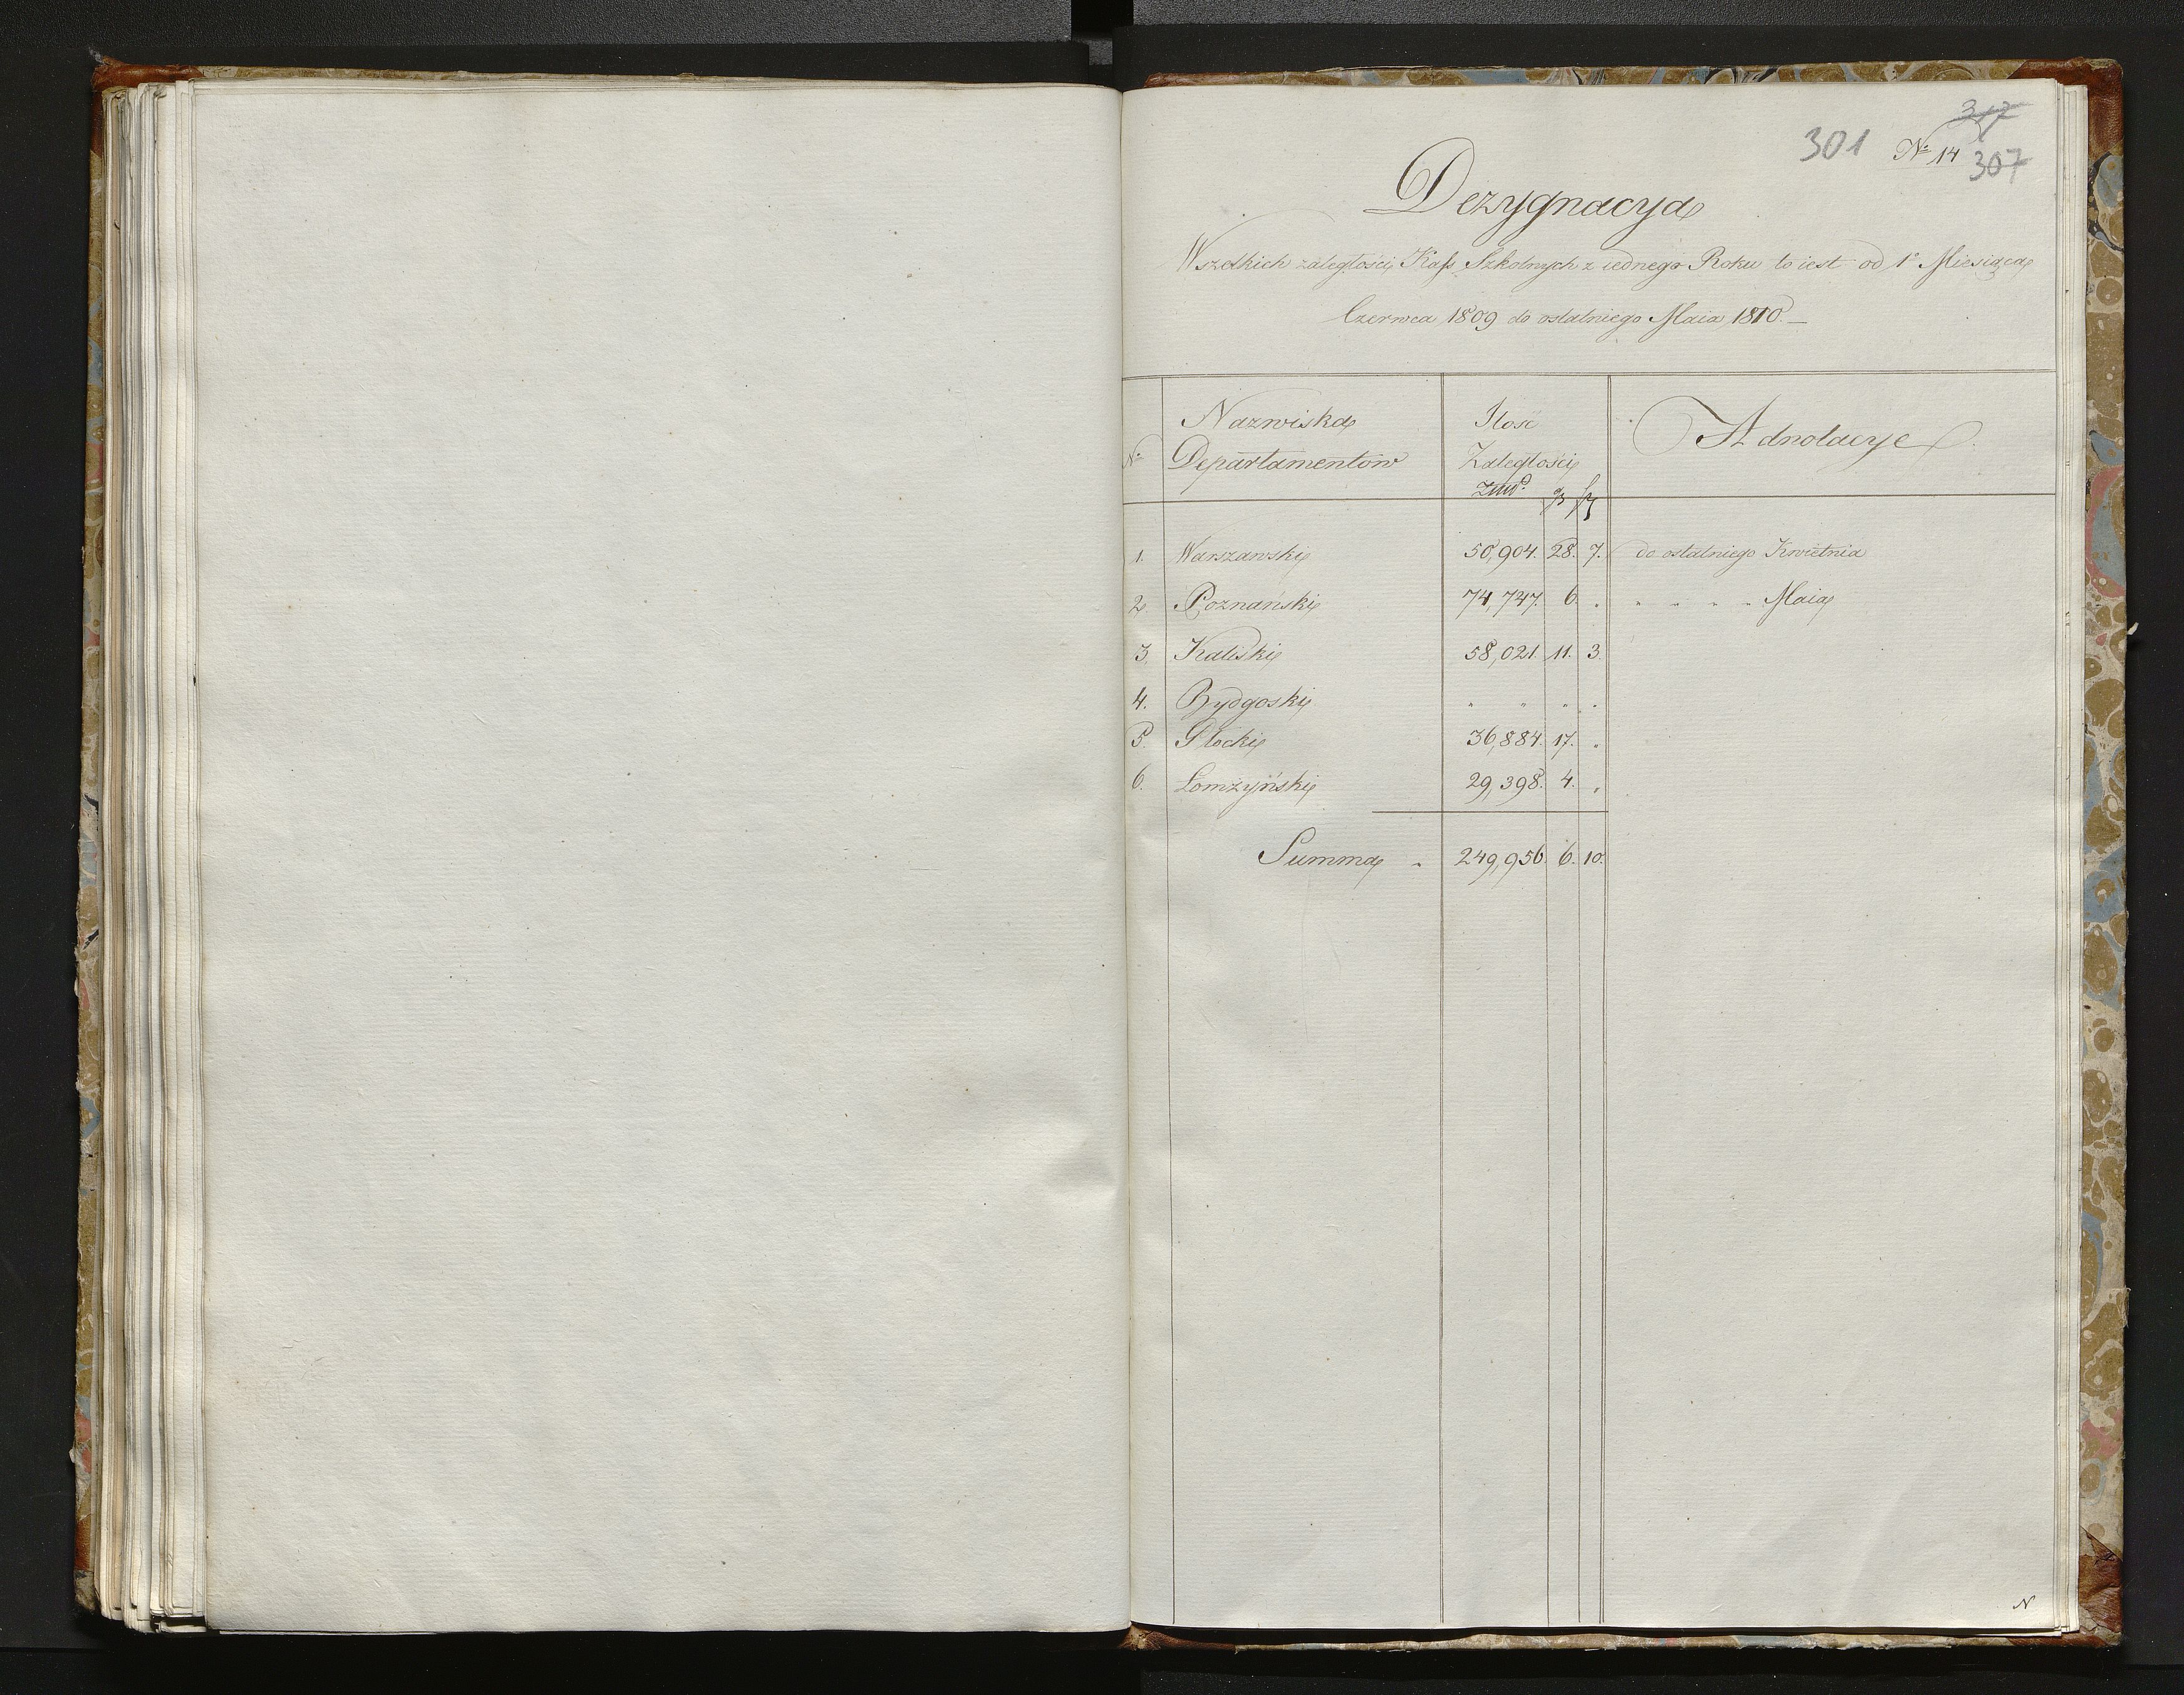 317
301 No 14 307
Dezygnacya
Wszelkich zaległości Kass Szkolnych z iednego Roku to iest od 1o Miesiąca
Czerwca 1809 do ostatniego Maia 1810. —
No Nazwiska Departamentów Ilość Zaległości Adnotacye
gr
1. Warszawski 50,904. 28. 7. do ostatniego Kwietnia
2. Poznański 74,747. 6. „ „ „ „ „ Maia
3. Kaliski 58,021. 11. 3.
4. Bydgoski „ „ „ „
5. Płocki 36,884. 17. „
6. Łomżyński 29,398. 4. „
Summa „ 249,956. 6. 10.
N